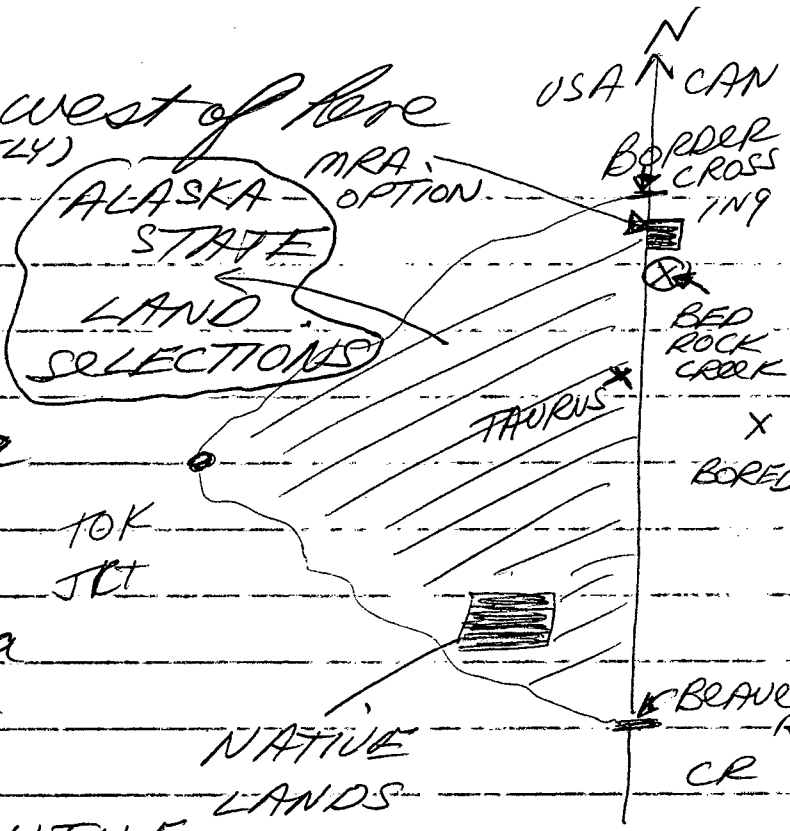 N
USA CAN
west of here
LY)
MRA
OPTION
BORDER
CROSS
ING
ALASKA
STATE
LAND
SELECTIONS
BED
ROCK
CREEK
TAURUS
X
BORED
TOK
JCT
a
NATIVE
LANDS
BEAVE
CR